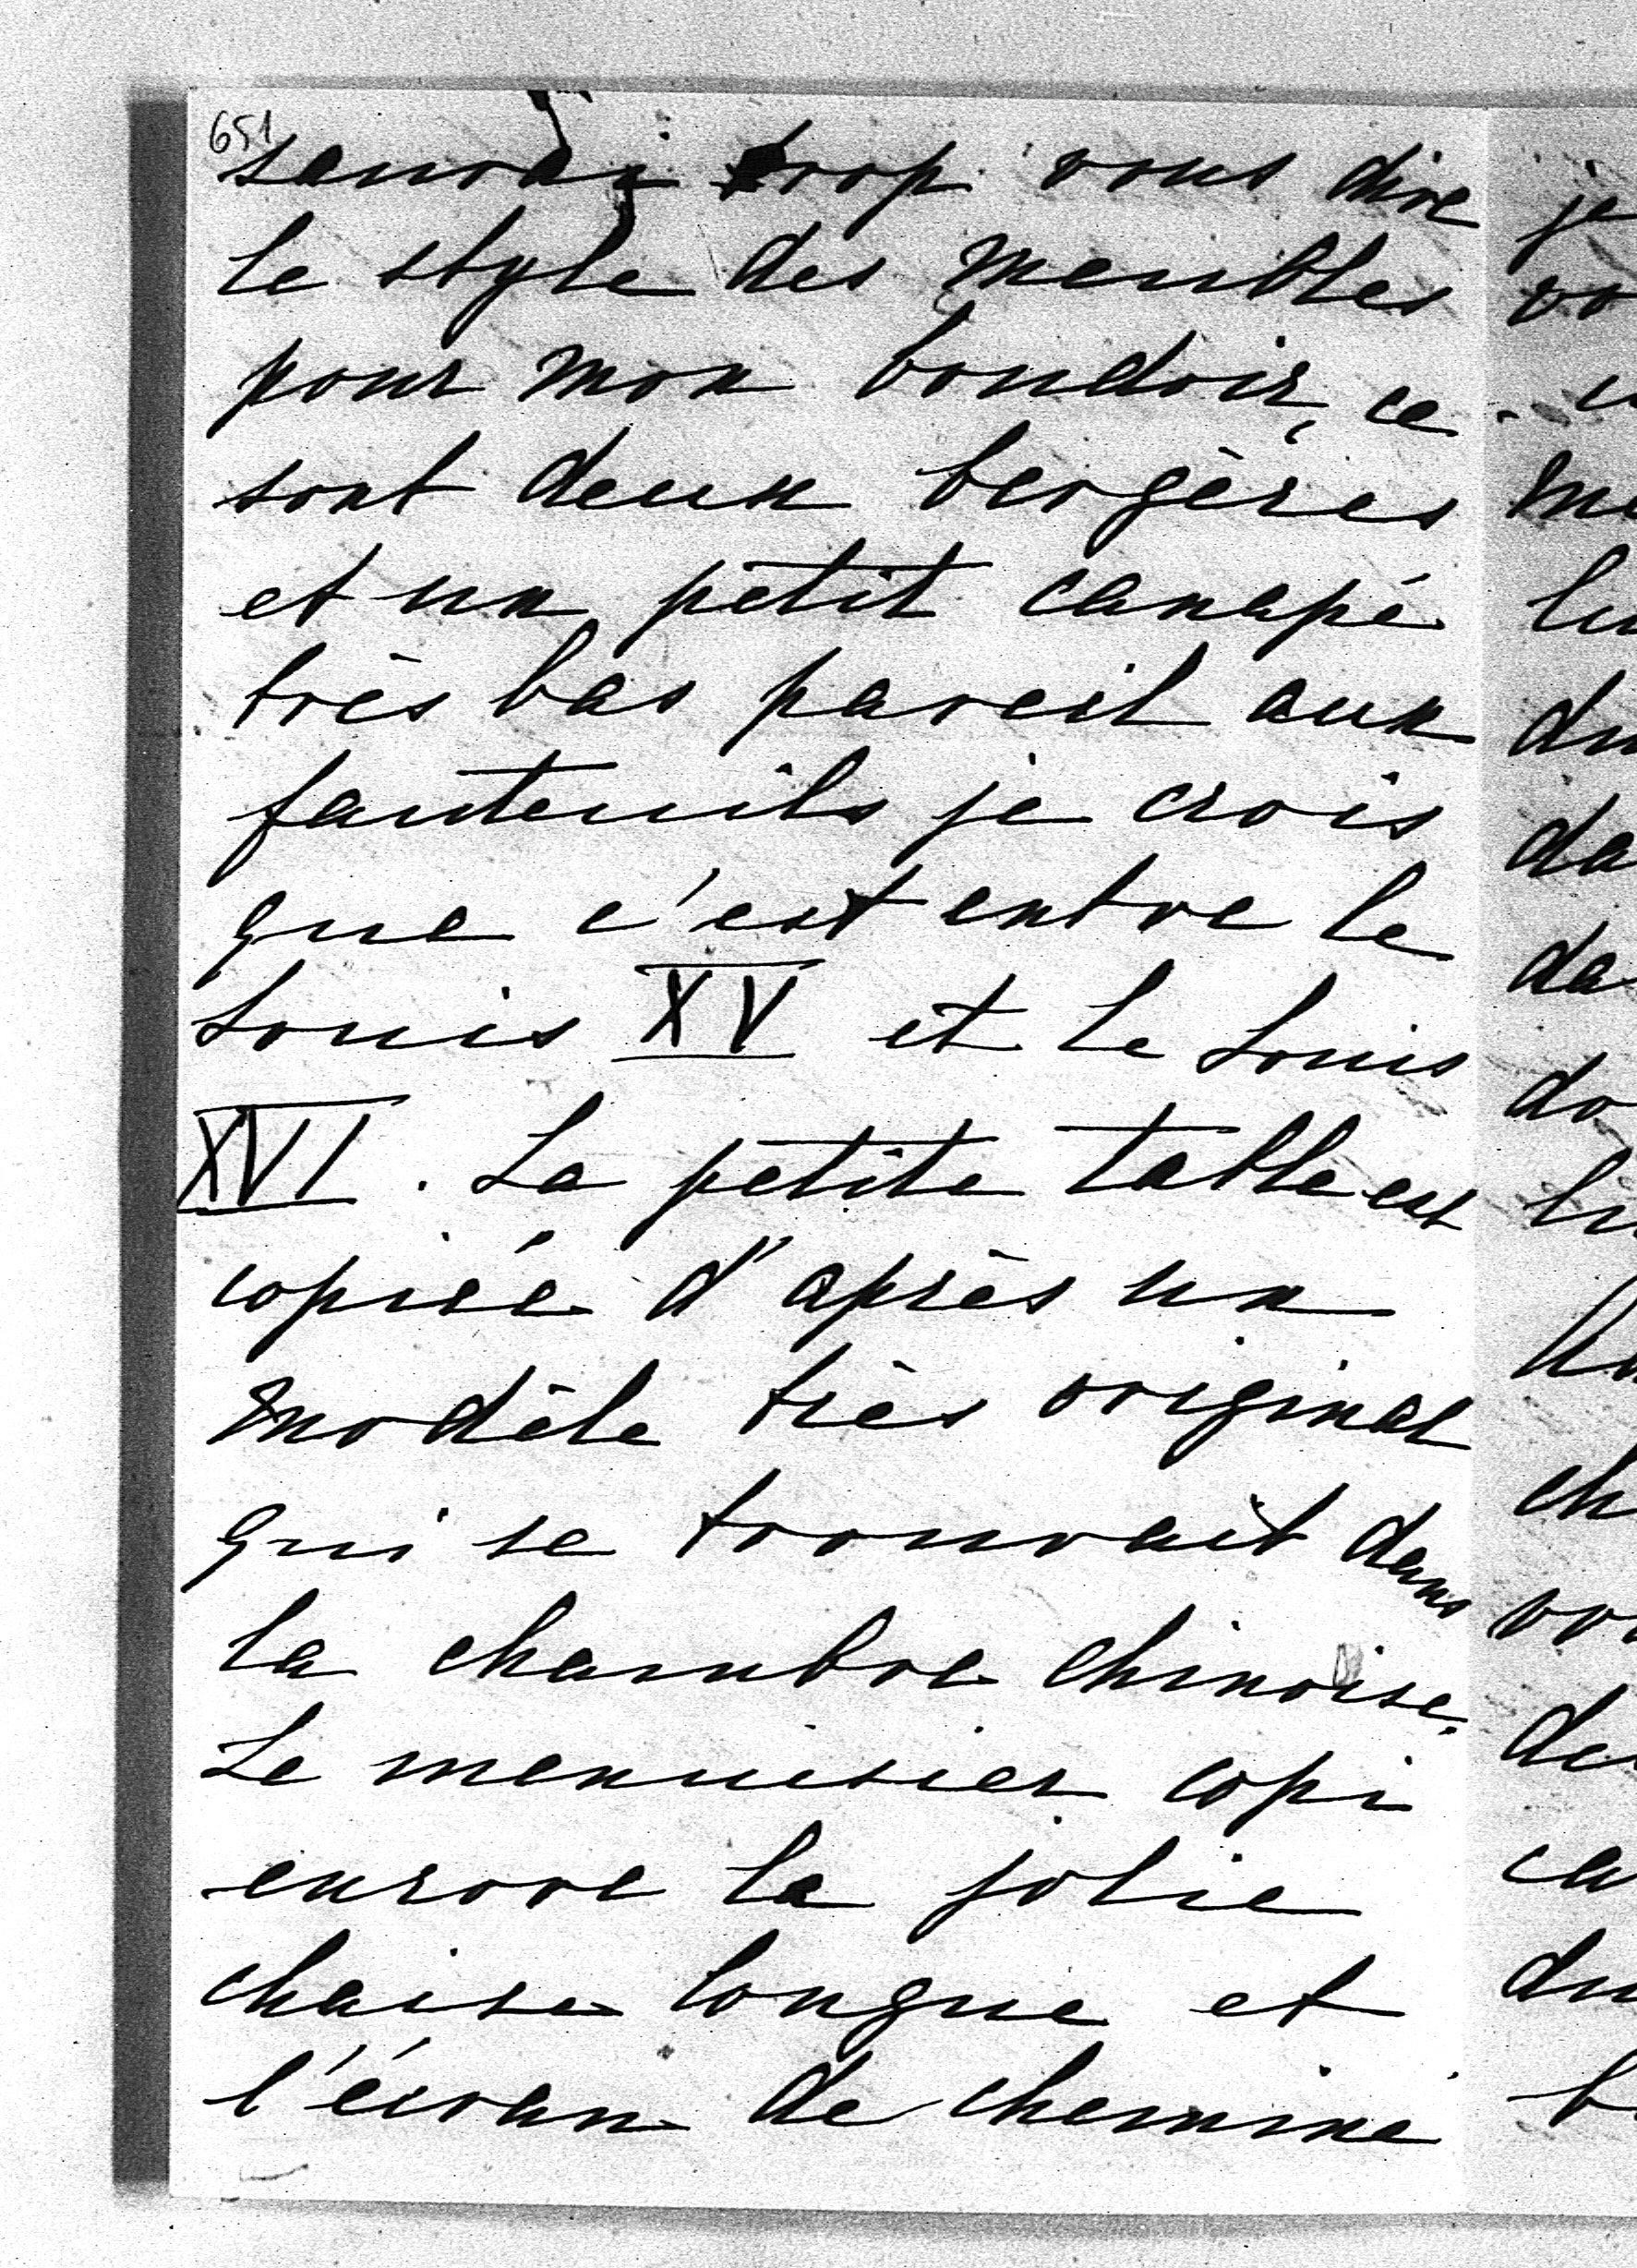 651
saurai trop vous dire
le style des meubles
pour mon boudoir, ce
sont deux bergères
et un petit canapé
très bas pareil aux
fauteuils je crois
que c'est entre le
Louis XV et le Louis
XVI. La petite table est
copiée d'après un
modèle très original
qui se trouvait dans
la chambre chinoise.
Le menuisier copi
encore la jolie
chaise longue et
l'écran de chemine
je
vo
me
lu
du
da
da
do
ch
de
ca
du